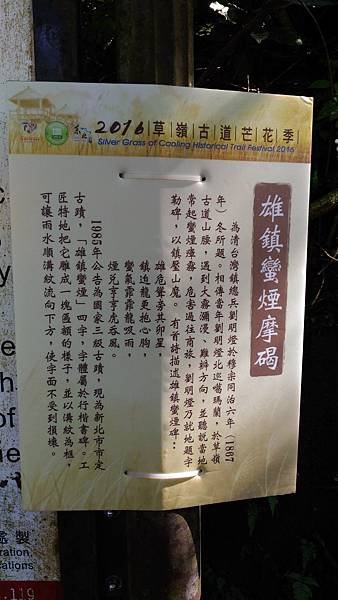 2016 草嶺古道芒花季
Silver Grass of Caoling Historical Trail Festival 2016
雄鎮蠻煙摩碣
為清台灣鎮總兵劉明燈於穆宗同治六年(1867
年)冬所題。相傳當年劉明燈北巡噶瑪蘭,於草嶺
古道山腰,遇到大霧瀰漫、難辨方向,並聽說當地
常起蠻煙瘴霧,危害過往商旅,劉明燈乃就地題字
勒碑,以鎮壓山魔。有首詩描述雄鎮蠻煙碑:
雄危聳旁其卯星,
鎮迫龍更抱心胸,
蠻氣霏霏龍吸雨,
煙兒宵宵虎吞風。
1985年公告為國家三級古蹟,現為新北市市定
古蹟,「雄鎮蠻煙」四字,字體屬於行楷書碑。工
匠特地把它雕成一塊匾額的樣子,並以溝紋為框,
可讓雨水順溝紋流向下方,使字面不受到損壞。
y
e
h
of
e
鑑製
ration,
ications
.119